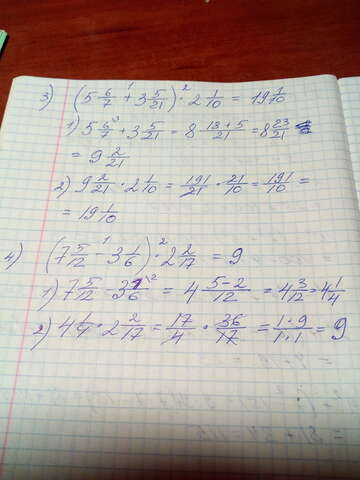 3) (5 6/7 + 3 5/21) · 2 1/10 = 19 1/10
1) 5 6/7 + 3 5/21 = 8 (18+5)/21 = 8 23/21
= 9 2/21
2) 9 2/21 · 2 1/10 = 191/21 · 21/10 = 191/10 =
= 19 1/10
4) (7 5/12 - 3 1/6) · 2 2/17 = 9
1) 7 5/12 - 3 1/6 = 4 (5-2)/12 = 4 3/12 = 4 1/4
2) 4 1/4 · 2 2/17 = 17/4 · 36/17 = (1·9)/(1·1) = 9